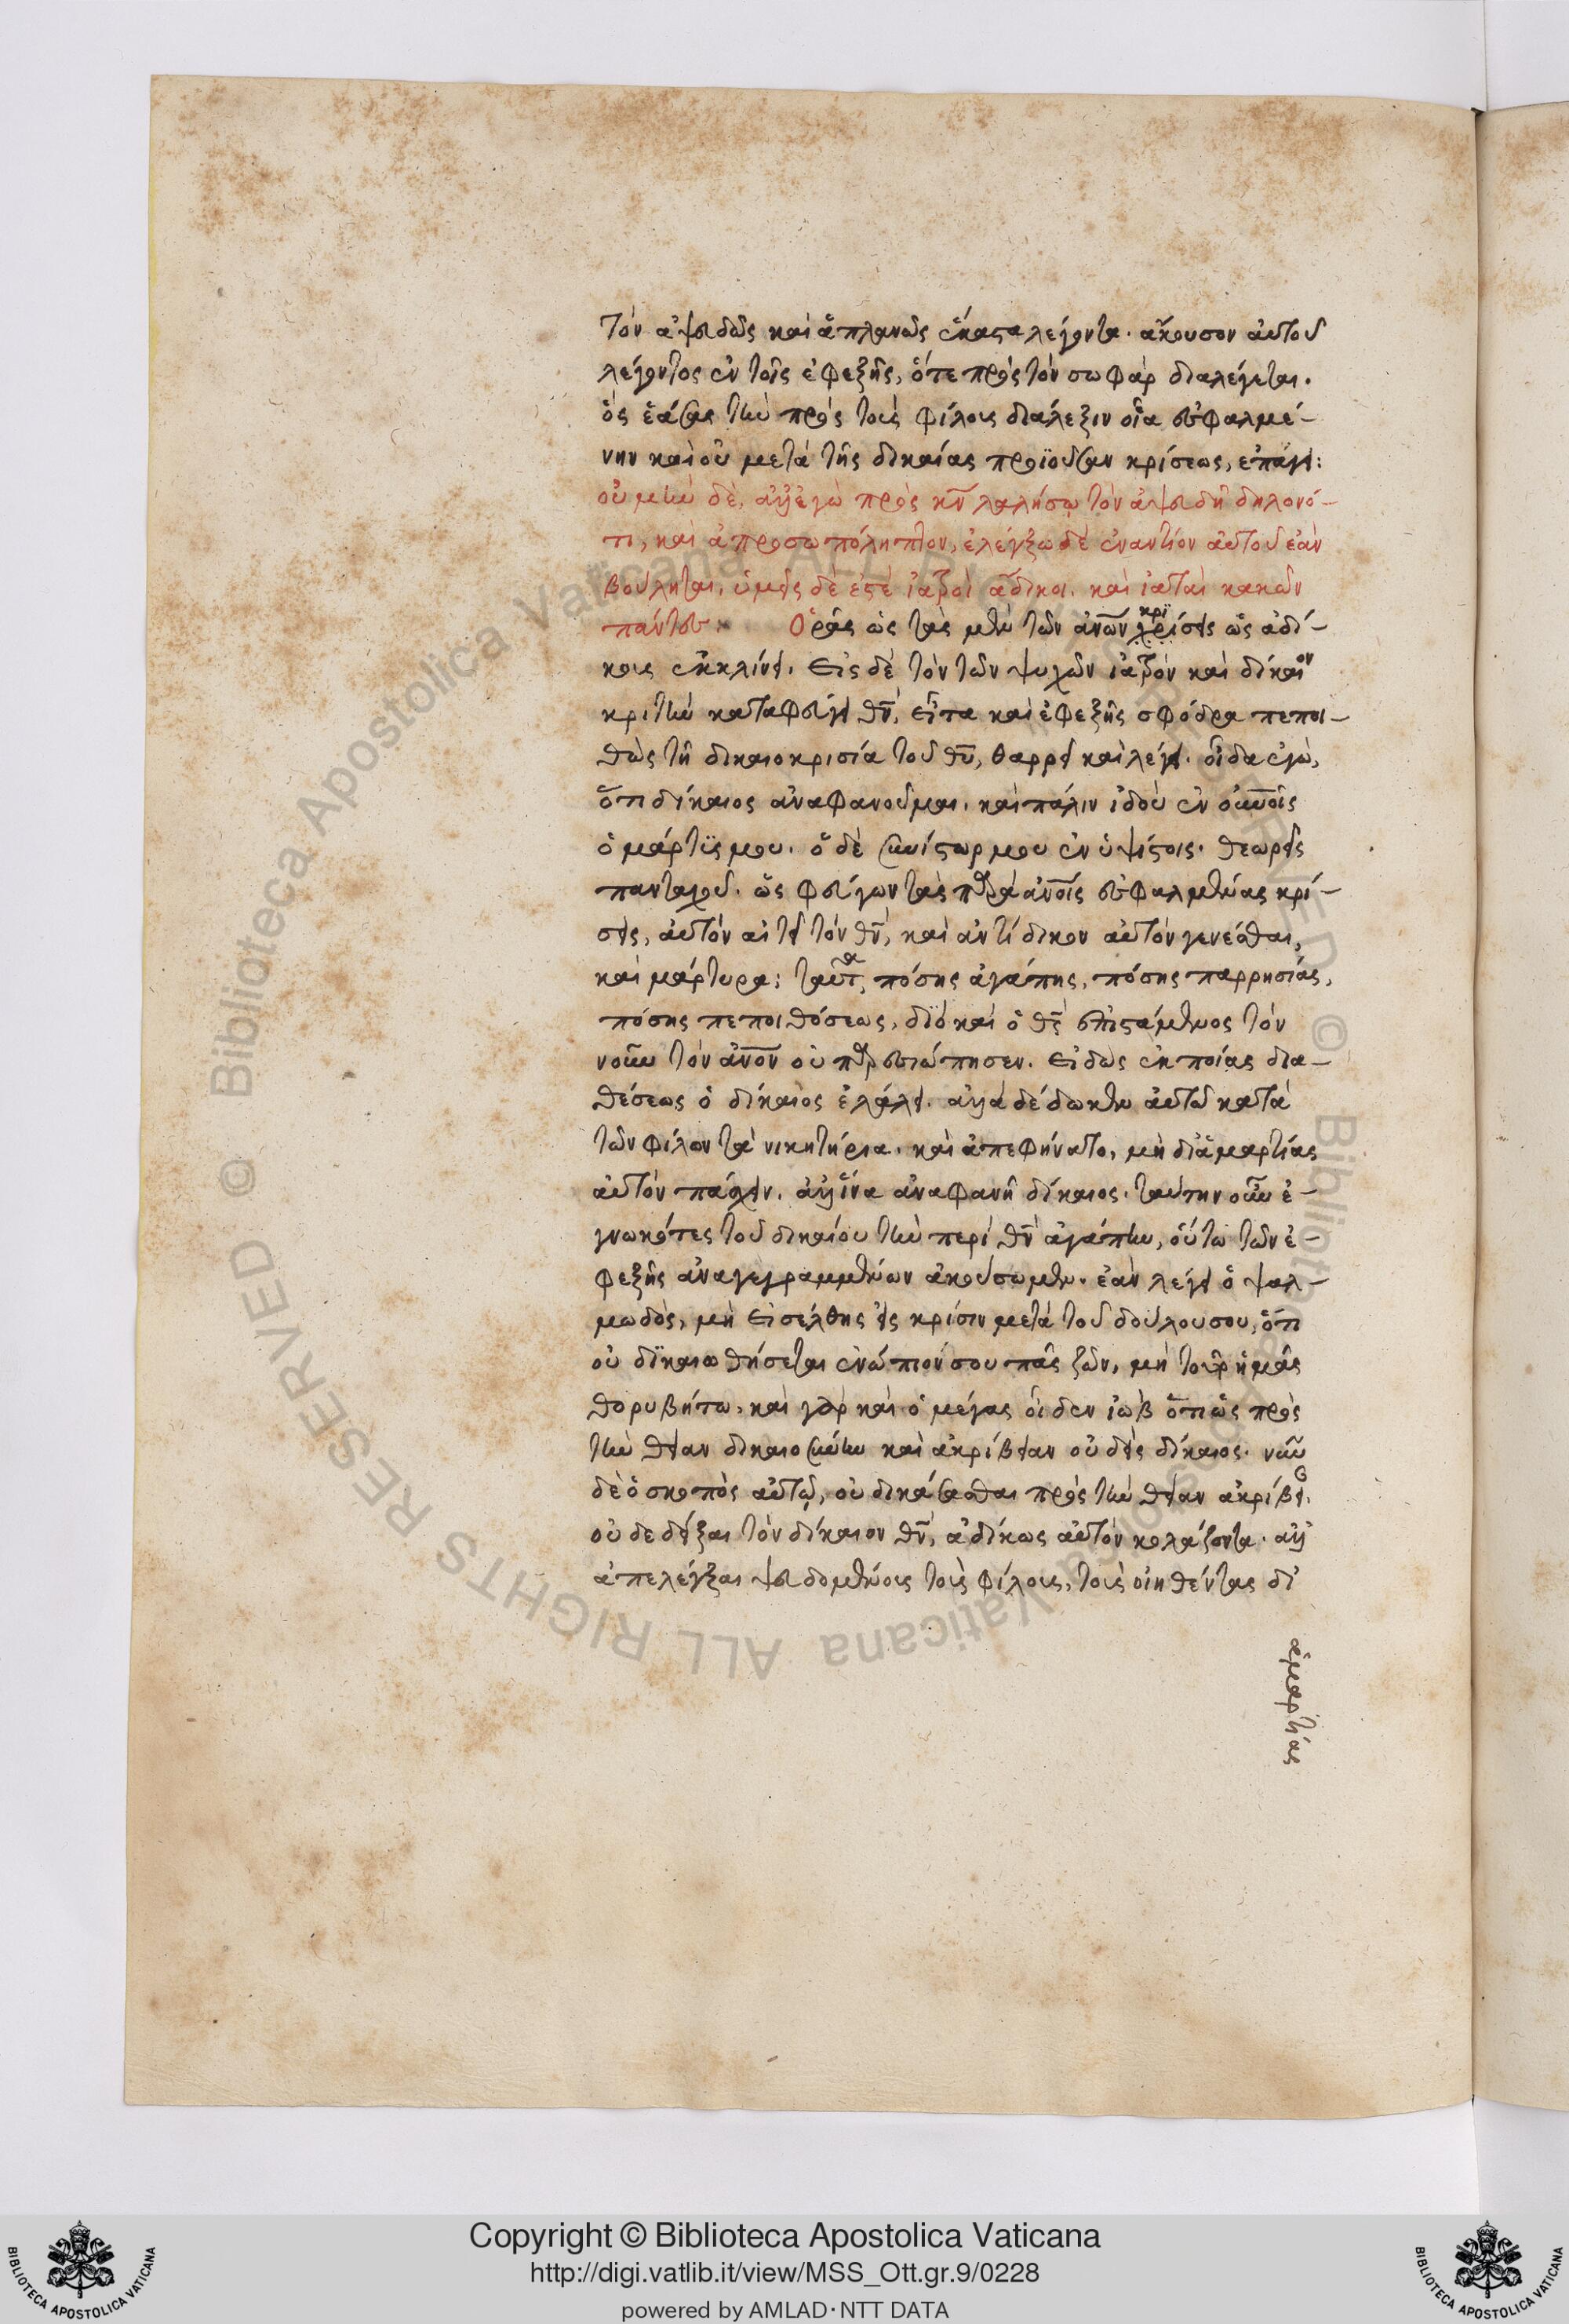 τὸν ἀψευδῶς καὶ ἀπλανῶς ἕκαστα λέγοντα. ἄκουσον αὐτοῦ
λέγοντος ἐν τοῖς ἐφεξῆς, ὅτε πρὸς τὸν σωφὰρ διαλέγεται.
ὃς ἐάσας τὴν πρὸς τοὺς φίλους διάλεξιν οἷα ἐσφαλμέ-
νην καὶ οὐ μετὰ τῆς δικαίας προϊοῦσαν κρίσεως, ἐπάγει:
οὐ μὴν δὲ, ἀλλ' ἐγὼ πρὸς κν̄ λαλήσω τὸν ἀψευδῆ δηλονό-
τι, καὶ ἀπροσωπόληπτον, ἐλέγξω δὲ ἐναντίον αὐτοῦ ἐὰν
βούληται, ὑμεῖς δὲ ἐστὲ ἰατροὶ ἄδικοι. καὶ ἰαταὶ κακῶν
πάντες: Ὁρᾷς ὡς τὰς μὲν τῶν ἀν̄ων κρίσεις ὡς ἀδί-
κους ἐκκλίνει. εἰς δὲ τὸν τῶν ψυχῶν ἰατρὸν καὶ δίκαιον
κριτὴν καταφεύγει θν̄, εἶτα καὶ ἐφεξῆς σφόδρα πεποι-
θὼς τῇ δικαιοκρισία τοῦ θῡ, θαρρεῖ καὶ λέγει. οἶδα ἐγὼ,
ὅτι δίκαιος ἀναφανοῦμαι. καὶ πάλιν ἰδοὺ ἐν οὐν̄οῖς
ὁ μάρτϋς μου. ὁ δὲ συνίστωρ μου ἐν ὑψίστοις. θεωρεῖς
πανταχοῦ. ὡς φεύγων τὰς παρὰ ἀν̄οις ἐσφαλμένας κρί-
σεις, αὐτὸν αἰτεῖ τὸν θν̄, καὶ ἀντίδικον αὐτὸν γενέσθαι,
καὶ μάρτυρα; ταῦτα, πόσης ἀγάπης, πόσης παρρησίας,
πόσης πεποιθόσεως, διὸ καὶ ὁ θς̄ ἐπιστάμενος τὸν
νοῦν τὸν ἀν̄ον οὐ παρεσιώπησεν. εἰδὼς ἐκ ποίας δια-
θέσεως ὁ δίκαιος ἐλάλει. ἀλλὰ δέδωκεν αὐτῶ κατὰ
τῶν φίλον τὰ νικητήρια. καὶ ἀπεφήνατο, μὴ διἁμαρτίας
αὐτὸν πάσχειν. ἀλλ' ἵνα ἀναφανῆ δίκαιος. ταύτην οὖν ἐ-
γνωκότες τοῦ δικαίου τὴν περὶ θν̄ ἀγάπην, οὕτω τῶν ἐ-
φεξῆς ἀναγεγραμμένων ἀκούσωμεν. ἐὰν λέγει ὁ ψαλ-
μωδὸς, μὴ εἰσέλθης εἰς κρίσιν μετὰ τοῦ δούλου σου, ὅτι
οὐ δϊκαιωθήσεται ἐνώπιόν σου πᾶς ζῶν, μὴ τοῦθ' ἡμᾶς
θορυβήτω, καὶ γὰρ καὶ ὁ μέγας οἶδεν ἰὼβ ὅτι ὡς πρὸς
τὴν θείαν δικαιοσύνην καὶ ἀκρίβειαν οὐδεὶς δίκαιος. νῦν
δὲ ὁ σκοπὸς αὐτῷ, οὐ δικάσασθαι πρὸς τὴν θείαν ἀκρίβει.
οὐδε δεῖξαι τὸν δίκαιον θν̄, ἀδίκως αὐτὸν κολάζοντα. ἀλλ'
ἀπελέγξαι ψευδομένους τοὺς φίλους, τοὺς οἰηθέντας δι'
ἁμαρτίας
Copyright © Biblioteca Apostolica Vaticana
http://digi.vatlib.it/view/MSS_Ott.gr.9/0228
powered by AMLAD·NTT DATA
BIBLIOTECA APOSTOLICA VATICANA
BIBLIOTECA APOSTOLICA VATICANA
© Biblioteca Apostolica Vaticana ALL RIGHTS RESERVED
© Biblioteca Apostolica Vaticana ALL RIGHTS RESERVED